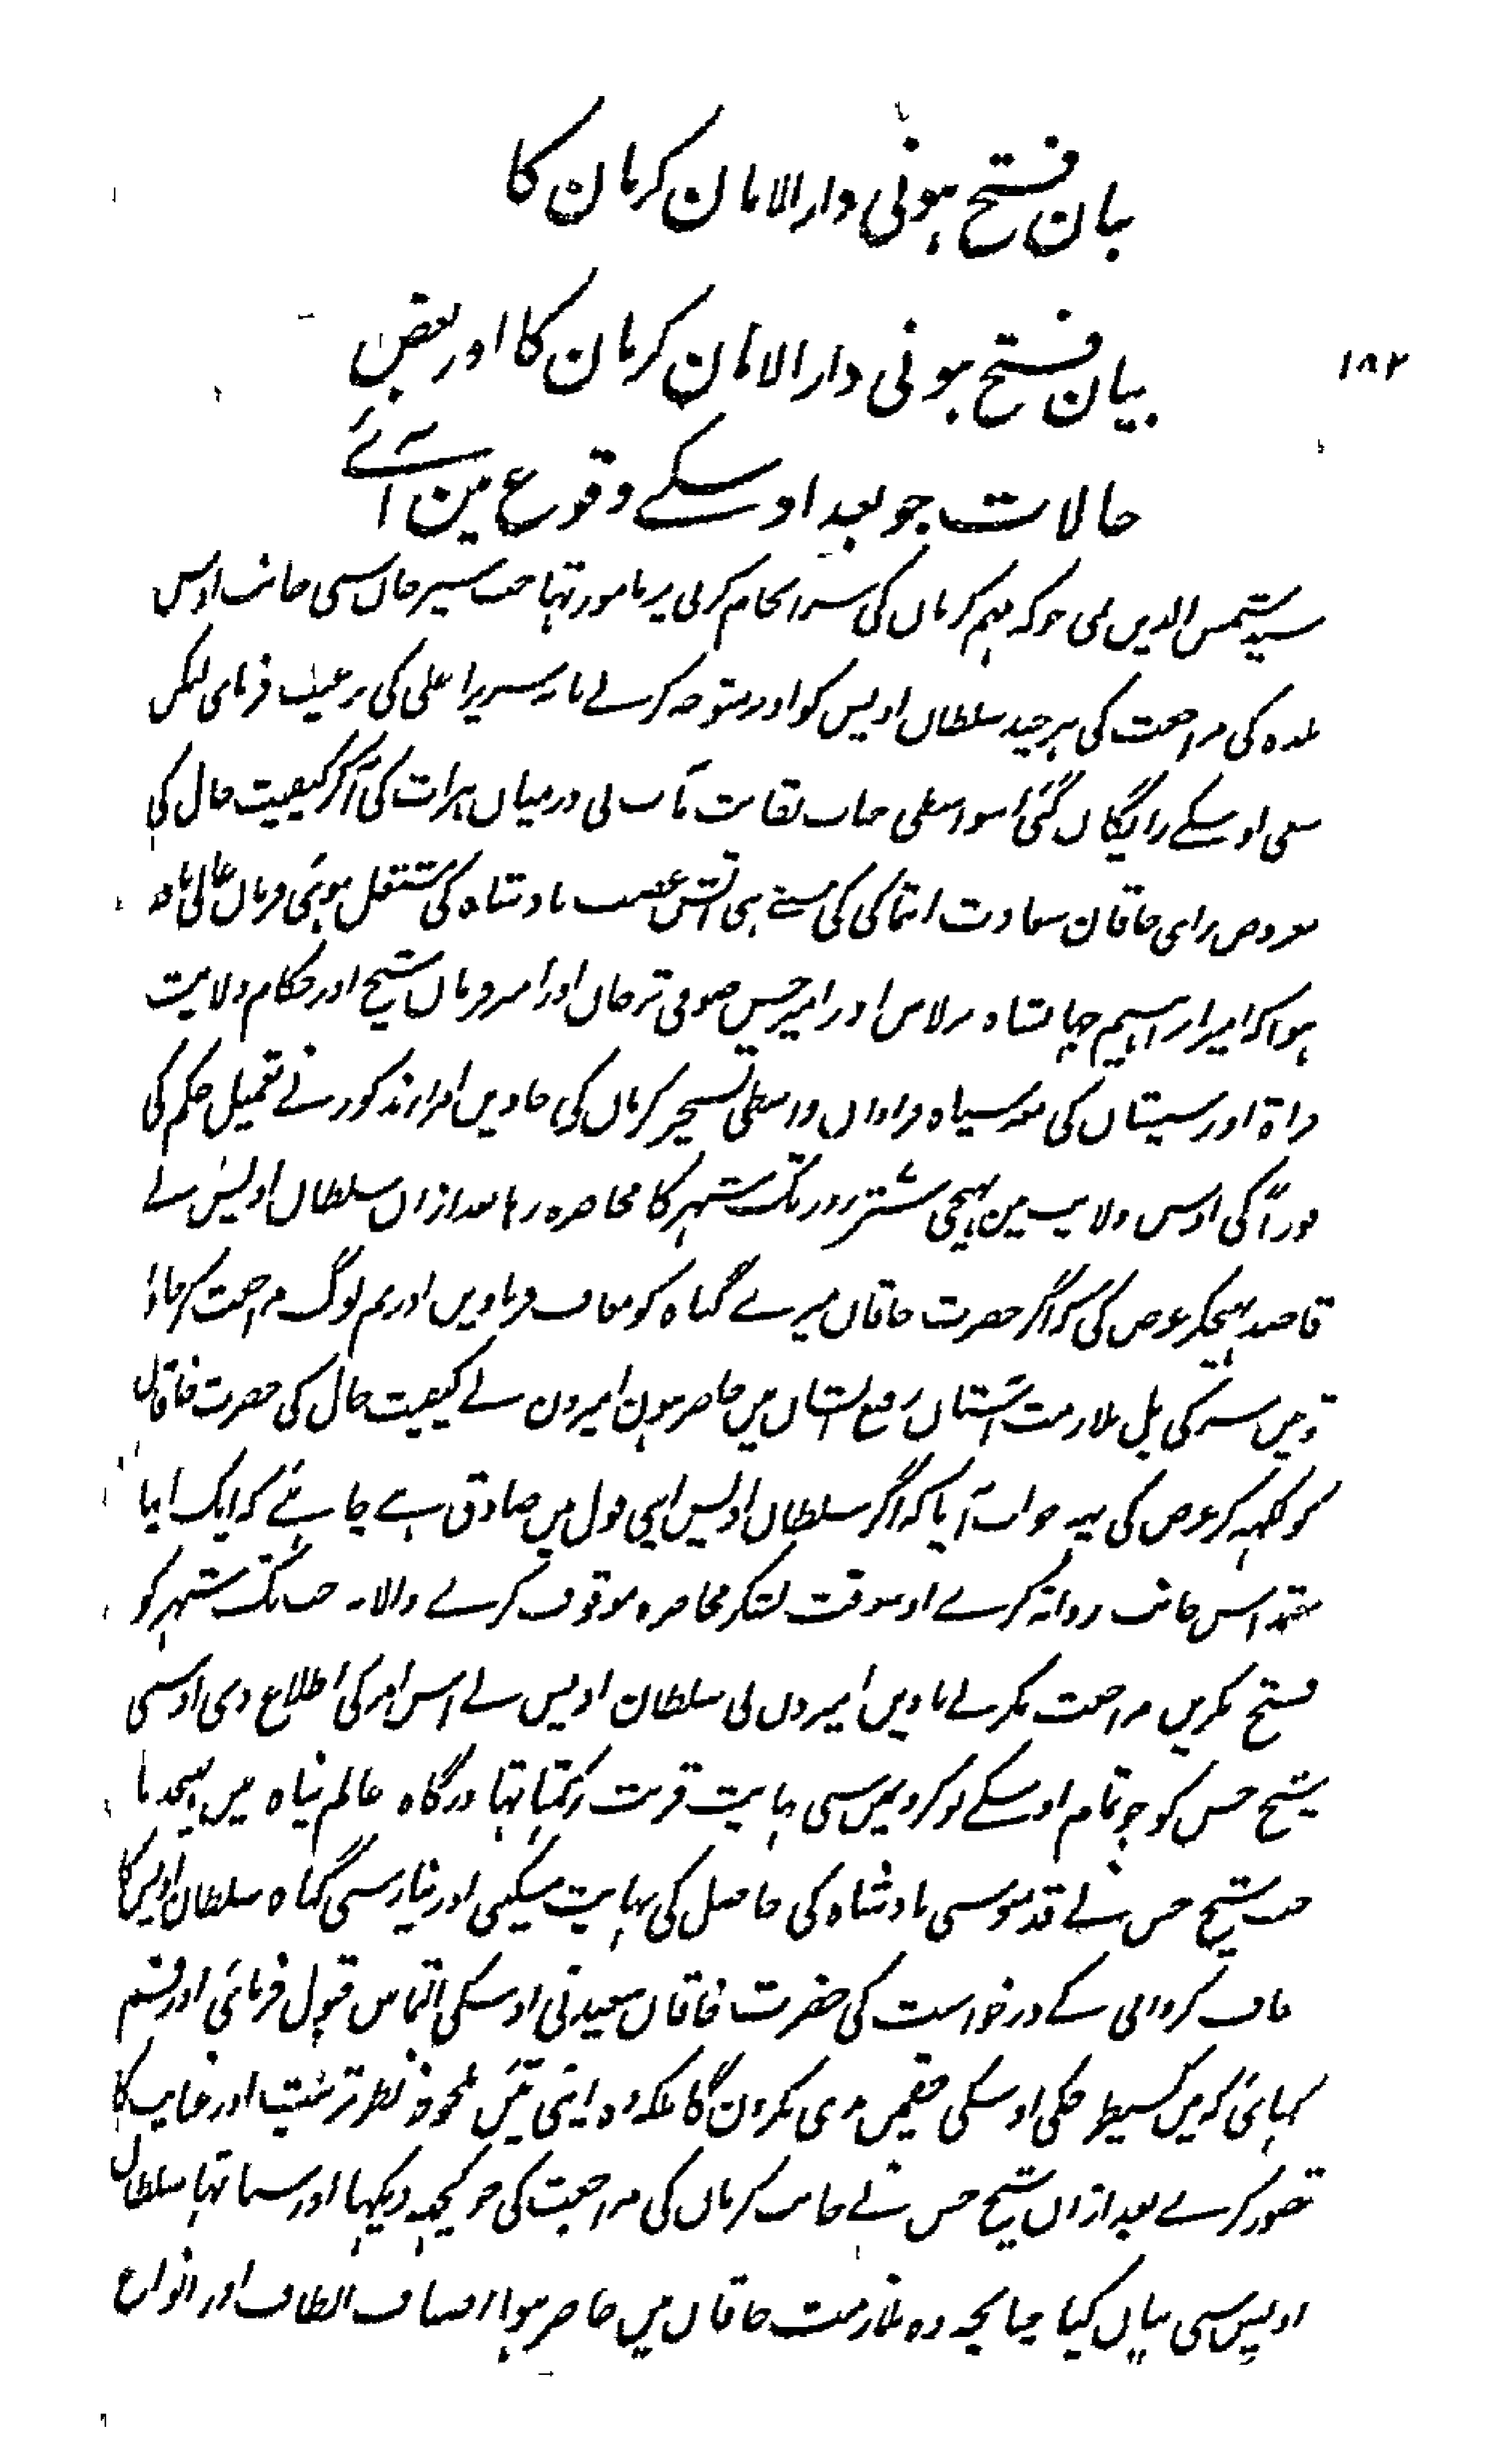 بیان فتح ہونی دار الامان کرمان کا
۱۸۲
بیان فتح ہونی دار الامان کرمان کا اور بعض
حالات جو بعد اوسکے وقوع مین آئے
سید شمس الدین نی جو کہ مہم کرمان کی سرانجام کرنی پر مامور تہا جب سیرجان سی جانب اوس
بلدہ کی مراجعت کی ہرچند سلطان اویس کو اوپر متوجہ کرنے پایہ سریر اعلی کی رغبت فرمای لیکن
سعی اوسکے رایگان گئی اسواسطی جناب نقابت مآب نی درمیان ہرات کی آکر کیفیت حال کی
معروض رای خاقان سعادت انتما کی کی سنتے ہی آتش غضب بادشاہ کی مشتعل ہوئی فرمان عالی شان
ہوا کہ امیر ابراہیم جہانشاہ برلاس اور امیر حسن صوفی ترخان اور امیر فرمان شیخ اور حکام ولایت
فراہ اور سیستان کی مع سپاہ فراوان واسطی تسخیر کرمان کی جاویں امراء مذکور نے تعمیل حکم کی
فوراً کی اوس ولایت مین پہنچی شتر روز تک شہر کا محاصرہ رہا بعد ازان سلطان اویس نے
قاصد بہیجکر عرض کی کہ اگر حضرت خاقان میرے گناہ کو معاف فرماویں اور تم لوگ مراجعت کر جاؤ
تو میں سر کی بل ملازمت آستان رفیع الشان میں حاضر ہون امیرون نے کیفیت حال کی حضرت خاقان
کو لکہہ کر عرض کی یہہ جواب آیا کہ اگر سلطان اویس اپنی قول میں صادق ہے چاہئے کہ ایک اپنا
معتمد اس جانب روانہ کرے اوسوقت لشکر محاصرہ موقوف کرے والا نہ جب تک شہر کو
فتح نکریں مراجعت نکرنے پاویں امیروں نی سلطان اویس نے اس امر کی اطلاع دی اوسی
شیخ حسن کو جو تمام اوسکے نوکرونمیں سی نہایت قربت رکہتا تہا درگاہ عالم پناہ میں بہیجدیا
جب شیخ حسن نے قدمبوسی بادشاہ کی حاصل کی نہایت مسکینی اور نیاز سی گناہ سلطان اویس کا
معاف کروانی کے درخواست کی حضرت خاقان سعید نی اوسکی التماس قبول فرمائی اور قسم
کہائی کہ میں کسیطرحکی اوسکی حقمیں بدی نکرون گا بلکہ وہ اپنی تئیں ملحوظ نظر تربیت اور عنایت کا
تصور کرے بعد ازان شیخ حسن نے جانب کرمان کی مراجعت کی جو کچہہ دیکہا اور سنا تہا سلطان
اویس سی بیان کیا چنانچہ وہ ملازمت خاقان میں حاضر ہوا اصناف الطاف اور انواع